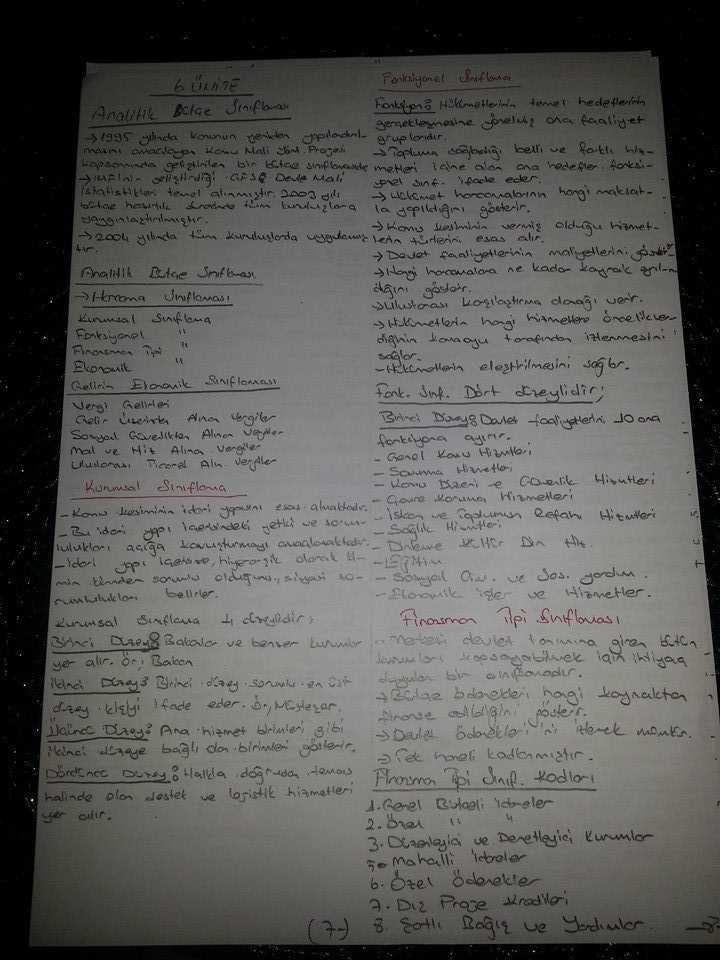 6 ÜNİTE
Analitik Bütçe Sınıflaması
→ 1995 yılında kamunun yeniden yapılandırıl-
masını amaçlayan Kamu Mali Yön. Projesi
kapsamında geliştirilen bir bütçe sınıflamasıdır
→ IMF'nin geliştirdiği GFS Devlet Mali
istatistikleri temel alınmıştır. 2003 yılı
bütçe hazırlık sürecinde tüm kuruluşlara
yaygınlaştırılmıştır.
→ 2004 yılında tüm kuruluşlarda uygulamış
tır.
Analitik Bütçe Sınıflaması
→ Harcama Sınıflaması
Kurumsal Sınıflama
Fonksiyonel "
Finansman Tipi "
Ekonomik "
Gelirin Ekonomik Sınıflaması
Vergi Gelirleri
Gelir Üzerinden Alınan Vergiler
Sosyal Güvenlikten Alınan Vergiler
Mal ve Hiz Alınan Vergiler
Uluslarası Ticaret Alın Vergiler
Kurumsal Sınıflama
- Kamu kesiminin idari yapısını esas almaktadır.
- Bu idari yapı içerisindeki yetki ve sorum-
lulukları açığa kavuşturmayı amaçlamaktadır.
- İdari yapı içerisinde, hiyerarşik olarak ki-
min kimden sorumlu olduğunu, siyasi so-
rumlulukları belirler.
Kurumsal Sınıflama 4 düzeylidir;
Birinci Düzey: Bakanlar ve benzer kurumlar
yer alır. Ör; Bakan
İkinci Düzey: Birinci düzey sorumlu en üst
düzey kişiyi ifade eder. Ör, Müsteşar.
Üçüncü Düzey: Ana hizmet birimleri gibi
ikinci düzeye bağlı olan birimleri gösterir.
Dördüncü Düzey: Halkla doğrudan temas
halinde olan destek ve lojistik hizmetleri
yer alır.
(7-)
Fonksiyonel Sınıflama
Fonksiyon: Hükümetlerinin temel hedeflerinin
gerçekleşmesine yönelmiş ana faaliyet
gruplarıdır.
→ Topluma sağladığı belli ve farklı hiz-
metleri içine alan ana hedefler fonksi-
yonel sınıf. ifade eder.
→ Hükümet harcamalarının hangi maksat-
la yapıldığını gösterir.
→ Kamu kesiminin vermiş olduğu hizmet-
lerin türlerini esas alır.
→ Devlet faaliyetlerinin maliyetlerini gösterir
→ Hangi harcamalara ne kadar kaynak ayrıl-
dığını gösterir.
→ Uluslarası karşılaştırma olanağı verir.
→ Hükümetlerin hangi hizmetlere öncelik ver-
diğinin kamuoyu tarafından izlenmesini
sağlar.
- Hükümetlerin eleştirilmesini sağlar.
Fonk. Sınf. Dört düzeylidir;
Birinci Düzey: Devlet faaliyetlerini 10 ana
fonksiyona ayırır.
- Genel Kamu Hizmetleri
- Savunma Hizmetleri
- Kamu Düzeni ve Güvenlik Hizmetleri
- Çevre Koruma Hizmetleri
- İskan ve Toplumun Refahı Hizmetleri
- Sağlık Hizmetleri
- Dinlenme Kültür Din Hiz.
- Eğitim
- Sosyal Güv. ve Sos. yardım.
- Ekonomik işler ve Hizmetler.
Finansman Tipi Sınıflaması
Merkezi devlet tanımına giren bütün
kurumları kapsayabilmek için ihtiyaç
duyulan bir sınıflamadır.
→ Bütçe ödenekleri hangi kaynaktan
finanse edildiğini gösterir.
→ Devlet ödenekleri'ni izlemek mümkün.
→ Tek haneli kodlanmıştır.
Finansman Tipi Sınıf. Kodları
1. Genel Bütçeli İdareler
2. Özel " "
3. Düzenleyici ve Denetleyici Kurumlar
5. Mahalli İdareler
6. Özel Ödenekler
7. Dış Proje Kredileri
8. Şartlı Bağış ve Yardımlar